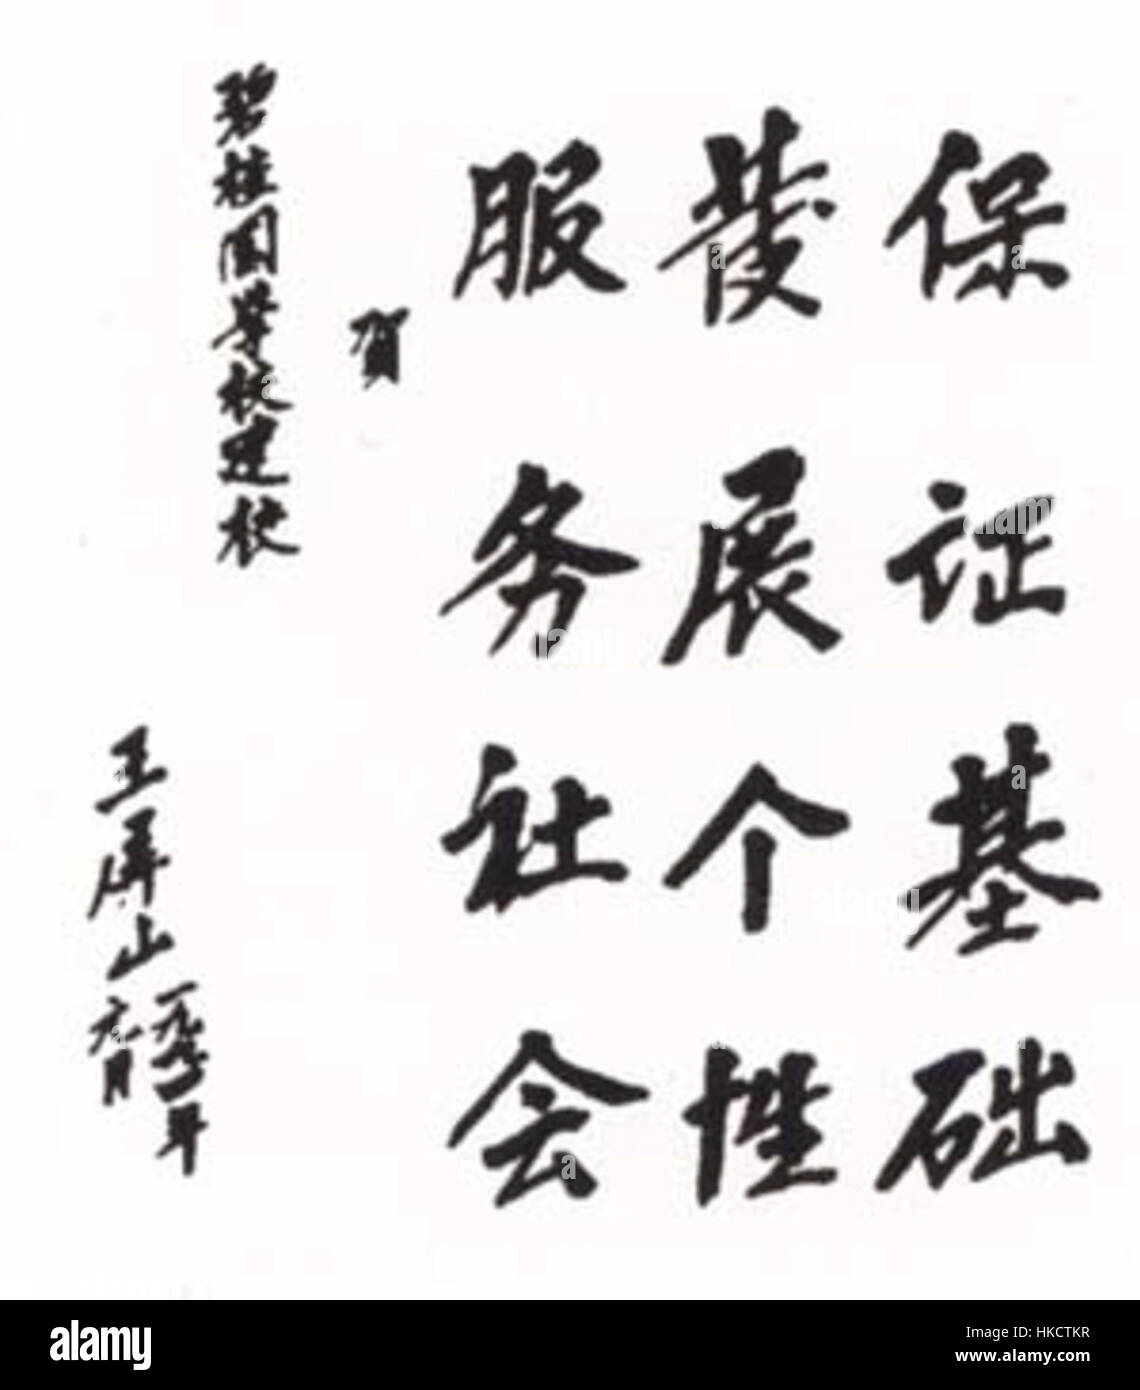 保证基础
发展个性
服务社会
贺
碧桂园学校建校
王屏山
一九九四年
六月
alamy
Image ID: HKCTKR
www.alamy.com